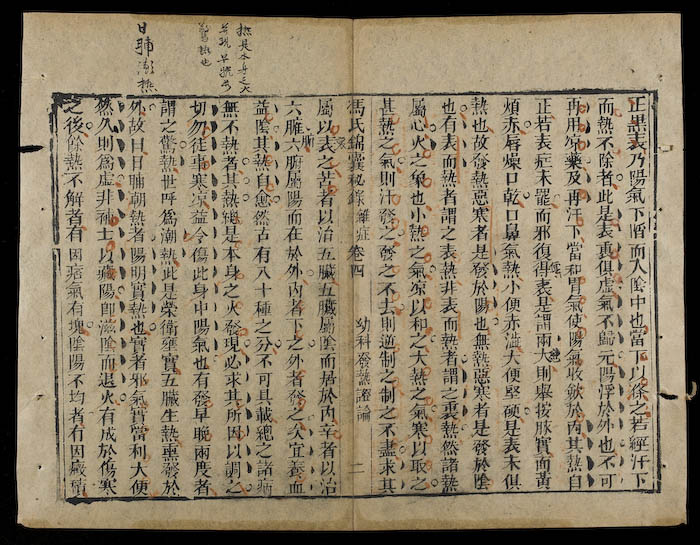 熱是本身之火
日晡潮熱
表乃陽氣下陷而入陰中也當下以徐之若經汗下
而熱不除者此是表裏俱虛氣不歸元陽浮於外也不可
再用凉藥及再汗下當和胃氣使陽氣收歛於內其熱自
正若表症未罷而邪復得表是謂兩大則舉按脉實而黃
煩赤唇燥口乾口鼻氣熱小便赤澁大便堅硬是表未俱
熱也故發熱惡寒者是發於陽也無熱惡寒者是發於陰
也有表而熱者謂之表熱非表而熱者謂之裏熱諸熱
屬心火之象也小熱之氣凉以和之大熱之氣寒以取之
甚熱之氣則汗發之發之不去則逆制之制之不盡求其
馮氏錦囊秘錄 雜症 卷四 幼科發熱證論 二
屬以表之苦者以治五臟五臟屬陰而居於內辛者以治
六腑六腑屬陽而在於外內者下之外者發之又宜養血
益陰其熱自愈然古有八十種之分不可具載總之諸病
無不熱者其熱總是本身之火發現必求其所因以調之
切勿往事寒凉益令傷此身中陽氣也有發早晚兩度者
謂之驚熱世呼爲潮熱此是榮衛壅實五臟生熱熏發於
外故日日晡朝熱者陽明實熱也實者邪氣實當利大便
然久則爲虛非補土以藏陽即滋陰而退火有成於傷寒
之後餘熱不解者有因痞氣有塊陰陽不均者有因